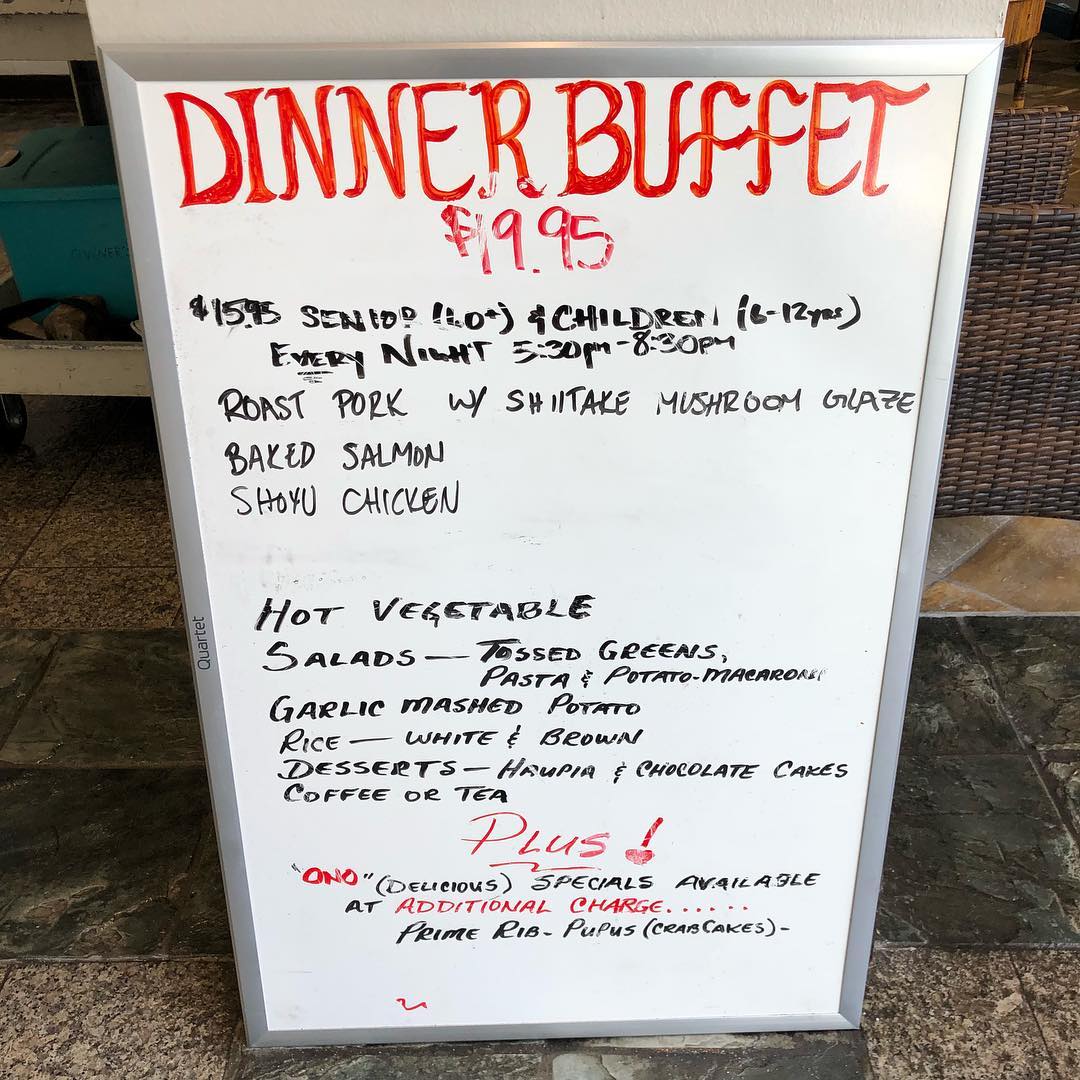 DINNER BUFFET
$19.95
$15.95 SENIOR (60+) & CHILDREN (6-12yrs)
EVERY NIGHT 5:30pm-8:30pm
ROAST PORK W/ SHIITAKE MUSHROOM GLAZE
BAKED SALMON
SHOYU CHICKEN
HOT VEGETABLE
SALADS — TOSSED GREENS,
PASTA & POTATO-MACARONI
GARLIC MASHED POTATO
RICE — WHITE & BROWN
DESSERTS — HAUPIA & CHOCOLATE CAKES
COFFEE OR TEA
PLUS!
"ONO" (DELICIOUS) SPECIALS AVAILABLE
AT ADDITIONAL CHARGE......
PRIME RIB- PUPUS (CRABCAKES)-
Quartet